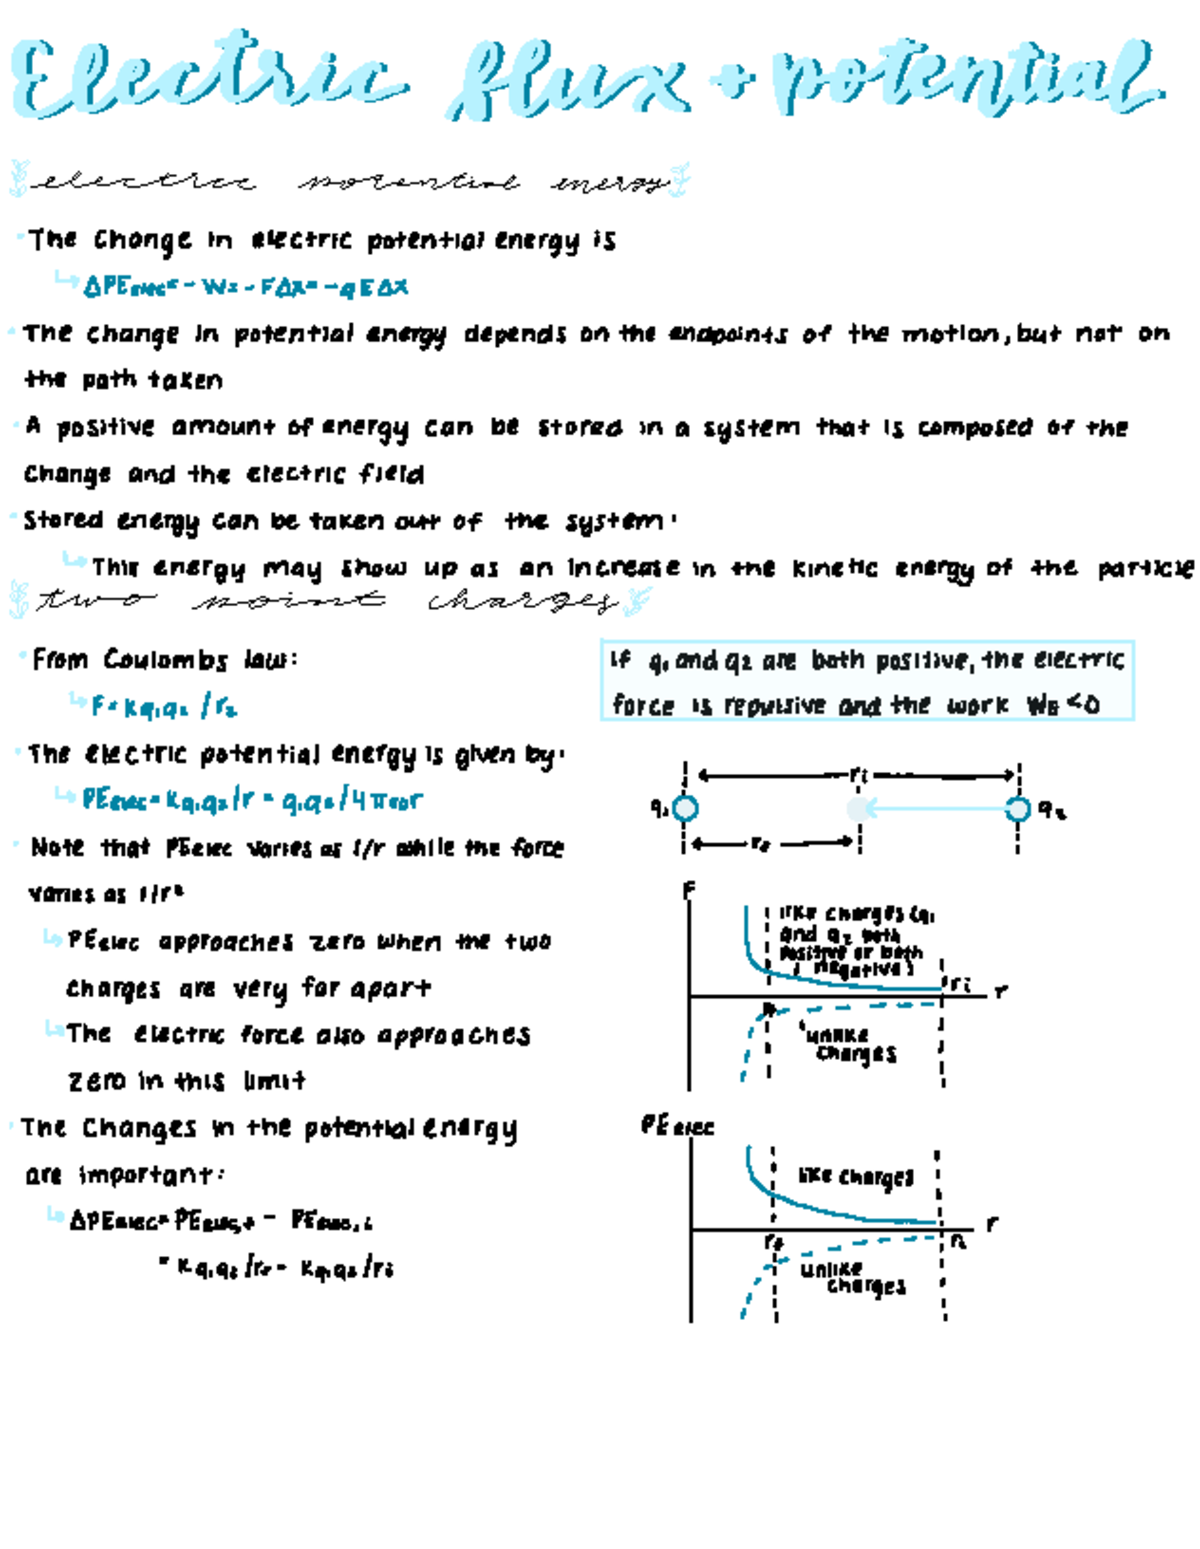 Electric flux + potential
electric potential energy
The Change in electric potential energy is
↳ ΔPEelec = - W = - FΔx = - qEΔx
The change in potential energy depends on the endpoints of the motion, but not on
the path taken
A positive amount of energy can be stored in a system that is composed of the
Change and the electric field
Stored energy can be taken out of the system:
↳ This energy may show up as an increase in the kinetic energy of the particle
two point charges
From Coulombs law:
↳ F = kq₁q₂ / r₂
The electric potential energy is given by:
↳ PEelec = kq₁q₂/r = q₁q₂/4πε₀r
Note that PEelec varies as 1/r while the force
varies as 1/r²
↳ PEelec approaches zero when the two
charges are very far apart
↳ The electric force also approaches
zero in this limit
The Changes in the potential energy
are important:
↳ ΔPEelec = PEelec,f - PEelec,i
= kq₁q₂/rf - kq₁q₂/ri
If q₁ and q₂ are both positive, the electric
force is repulsive and the work WE < 0
ri
q₁ q₂
rf
F
like charges (q₁
and q₂ both
positive or both
negative)
ri r
unlike
charges
PEelec
like charges
r
rf ri
unlike
charges